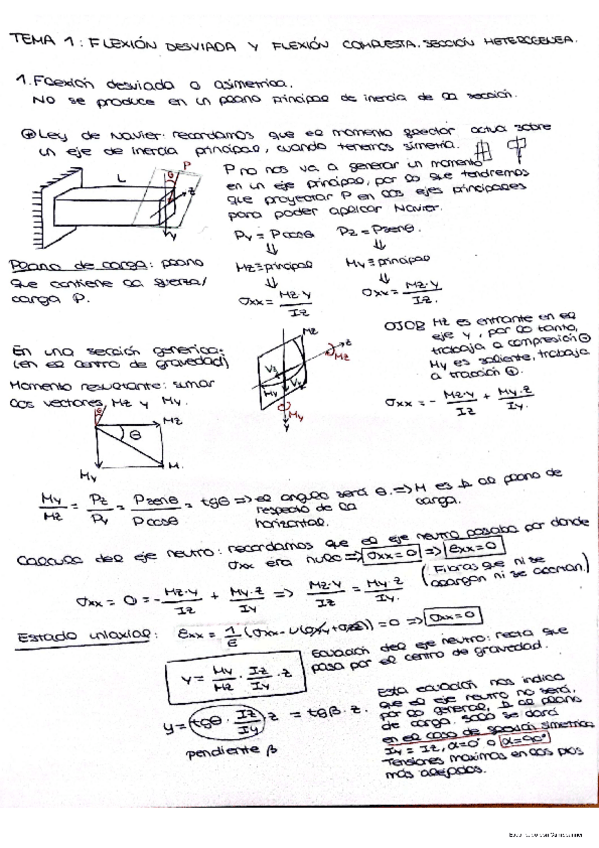 TEMA 1: FLEXIÓN DESVIADA Y FLEXIÓN COMPUESTA. SECCIÓN HETEROGENEA.
1. Flexión desviada o asimetrica.
No se produce en un plano principal de inercia de la sección.
Ley de Navier: recordamos que el momento flector actua sobre
un eje de inercia principal, cuando tenemos simetría.
L
θ
P
z
y
P no nos va a generar un momento
en un eje principal, por lo que tendremos
que proyectar P en los ejes principales
para poder aplicar Navier.
Py = Pcosθ Pz = Psenθ.
⇓ ⇓
Mz ≡ principal My ≡ principal
⇓ ⇓
σxx = Mz·y / Iz σxx = My·z / Iy.
Plano de carga: plano
que contiene la fuerza/
carga P.
En una sección generica:
(en el centro de gravedad)
Momento resultante: sumar
los vectores Mz y My.
Mz
z
Mz
Vz
Vy
My
My
y
OJO!! Mz es entrante en el
eje y, por lo tanto,
trabaja a compresión ⊖
My es saliente, trabaja
a tracción ⊕.
σxx = - Mz·y / Iz + My·z / Iy.
θ
Mz
θ
My
M.
My / Mz = Pz / Py = Psenθ / Pcosθ = tgθ => el angulo será θ. => M es ⊥ al plano de
respecto de la carga.
horizontal.
Calculo del eje neutro: recordamos que el eje neutro pasaba por donde
σxx era nulo => σxx = 0 => εxx = 0
(Fibras que ni se
alargan ni se acortan.)
σxx = 0 = - Mz·y / Iz + My·z / Iy => Mz·y / Iz = My·z / Iy
Estado uniaxial: εxx = 1/E (σxx - ν(σyy + σzz)) = 0 => σxx = 0
Ecuación del eje neutro: recta que
pasa por el centro de gravedad.
y = My / Mz · Iz / Iy · z
y = tgθ · Iz / Iy · z = tgβ · z.
pendiente β
Esta ecuación nos indica
que el eje neutro no será,
por lo general, ⊥ al plano
de carga. Solo se dará
en el caso de sección simetrica
Iy = Iz, α=0° o α=90°
Tensiones maximas en los ptos
más alejados.